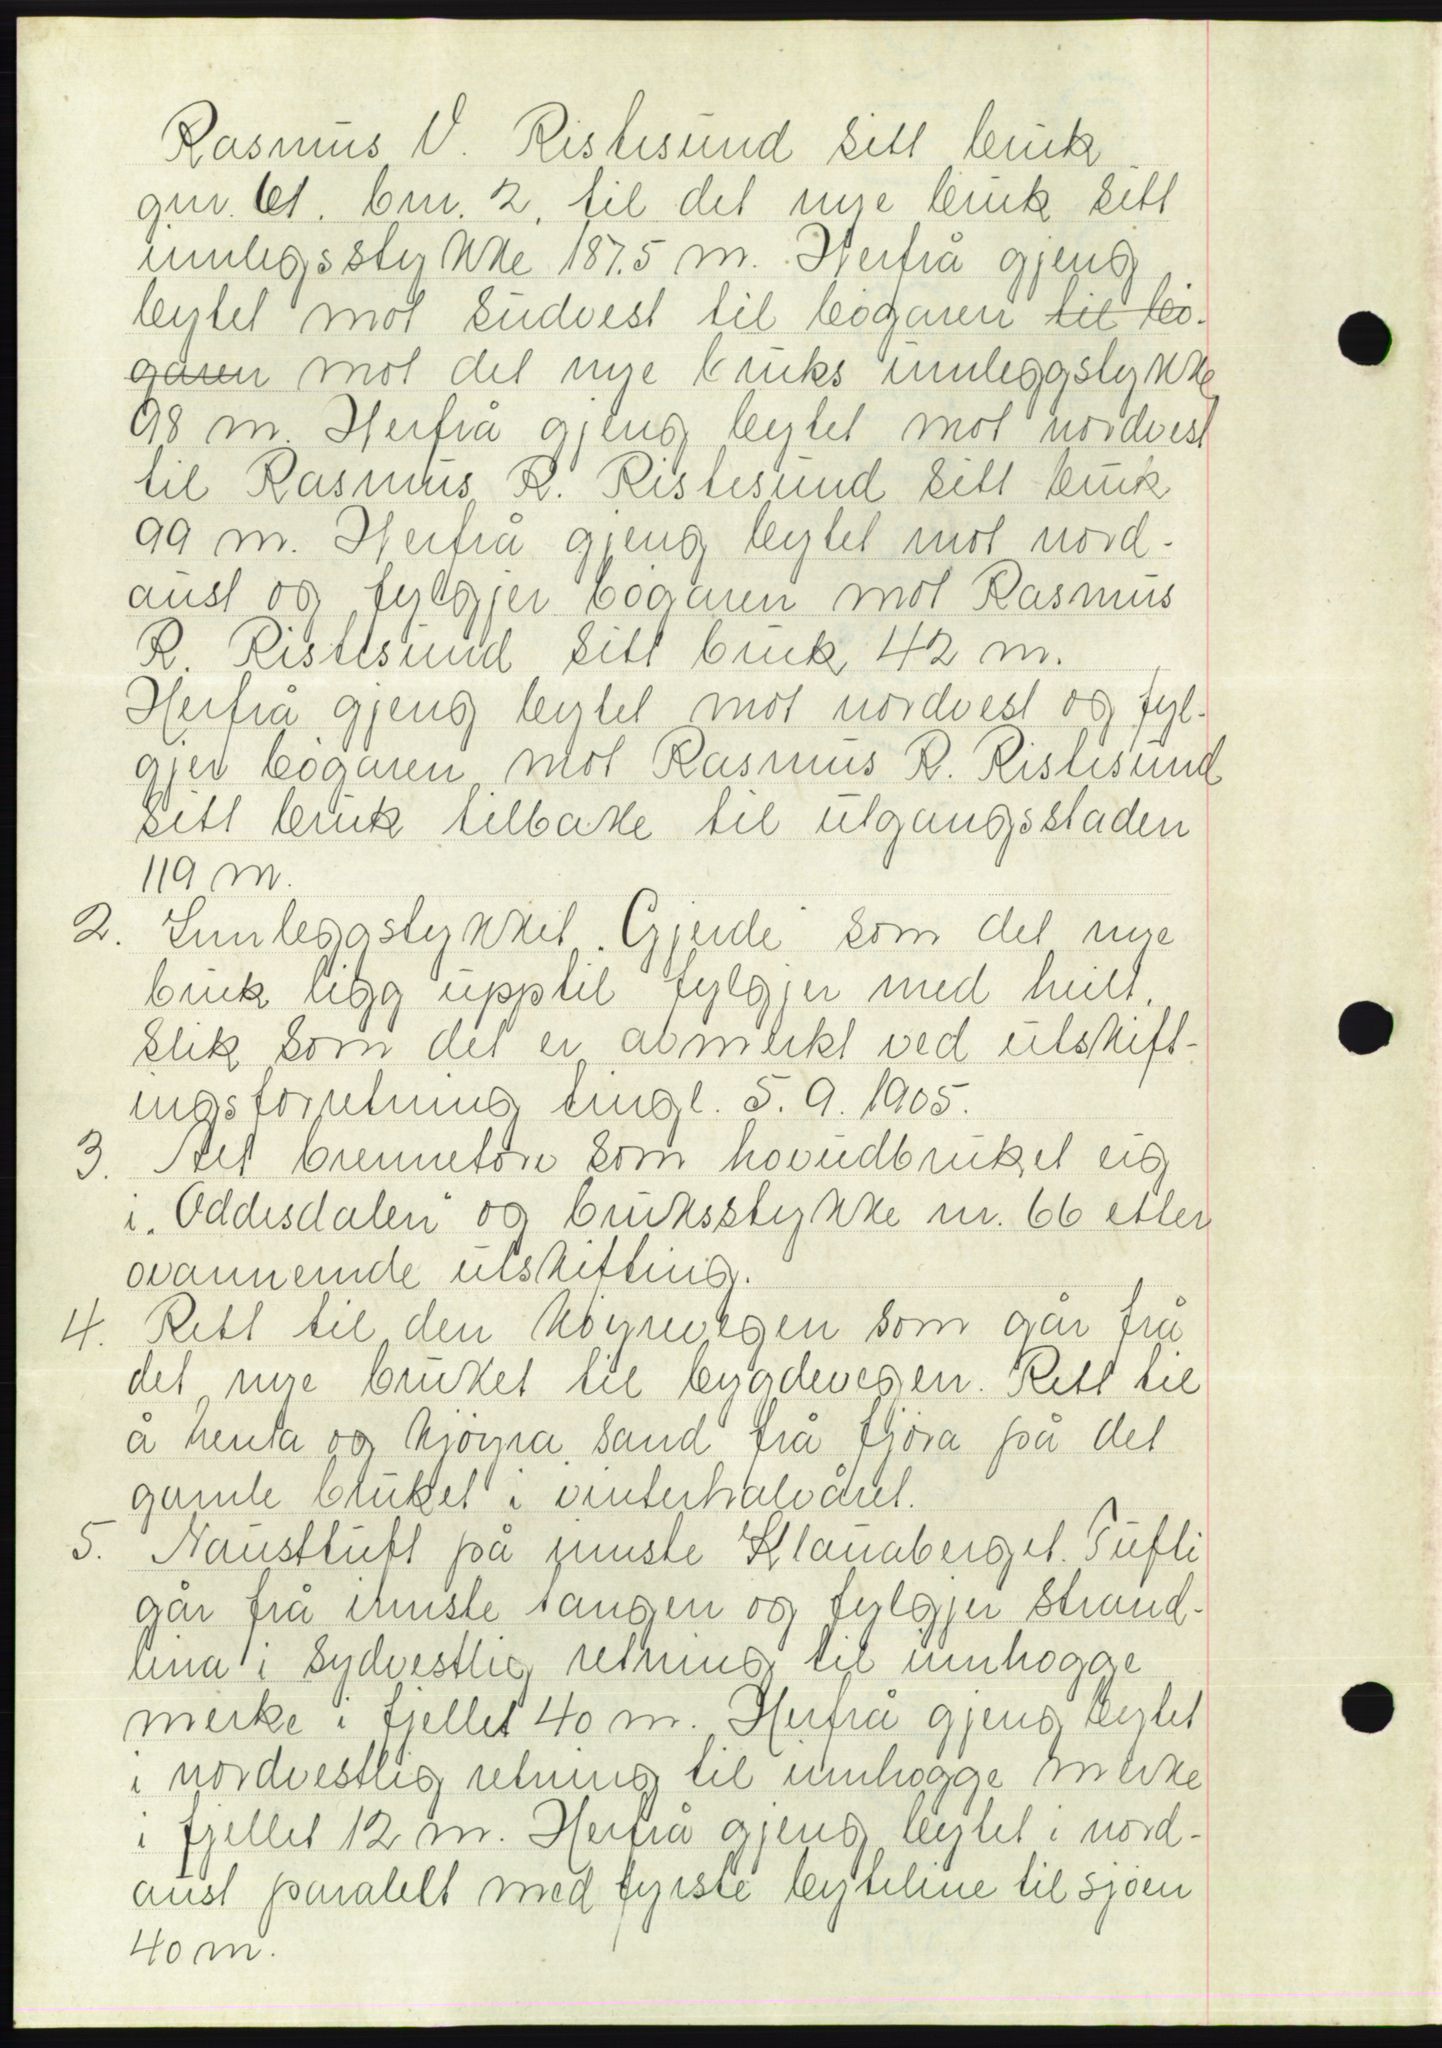 Rasmus V. Ristesund sitt bruk
gnr. 61. bnr. 2. til det nye bruk sitt
innlegsstykke 187.5 m. Herfrå gjeng
bytet mot sudvest til bøgaren til bø-
garen mot det nye bruks innleggstykke
98 m. Herfrå gjeng bytet mot nordvest
til Rasmus R. Ristesund sitt bruk
99 m. Herfrå gjeng bytet mot nord-
aust og fylgjer bøgaren mot Rasmus
R. Ristesund sitt bruk 42 m.
Herfrå gjeng bytet mot nordvest og fyl-
gjer bøgaren mot Rasmus R. Ristesund
sitt bruk tilbake til utgangsstaden
119 m.
2. Innleggstykket "Gjerde" som det nye
bruk ligg upptil fylgjer med heilt,
slik som det er avmerkt ved utskift-
ingsforretning tingl. 5.9.1905.
3. Alt brennetorv som hovudbruket eig
i "Oddesdalen" og bruksstykke nr. 66 etter
ovannemde utskifting.
4. Rett til den køyrevegen som går frå
det nye bruket til bygdevegen. Rett til
å henta og kjøyra sand frå fjøra på det
gamle bruket i vinterhalvåret.
5. Nausttuft på inste Klauvaberget. Tufti
går frå innste tangen og fylgjer strand-
lina i sydvestlig retning til innhogge
merke i fjellet 40 m. Herfrå gjeng bytet
i nordvestlig retning til innhogge merke
i fjellet 12 m. Herfrå gjeng bytet i nord-
aust paralelt med fyrste byteline til sjøen
40 m.